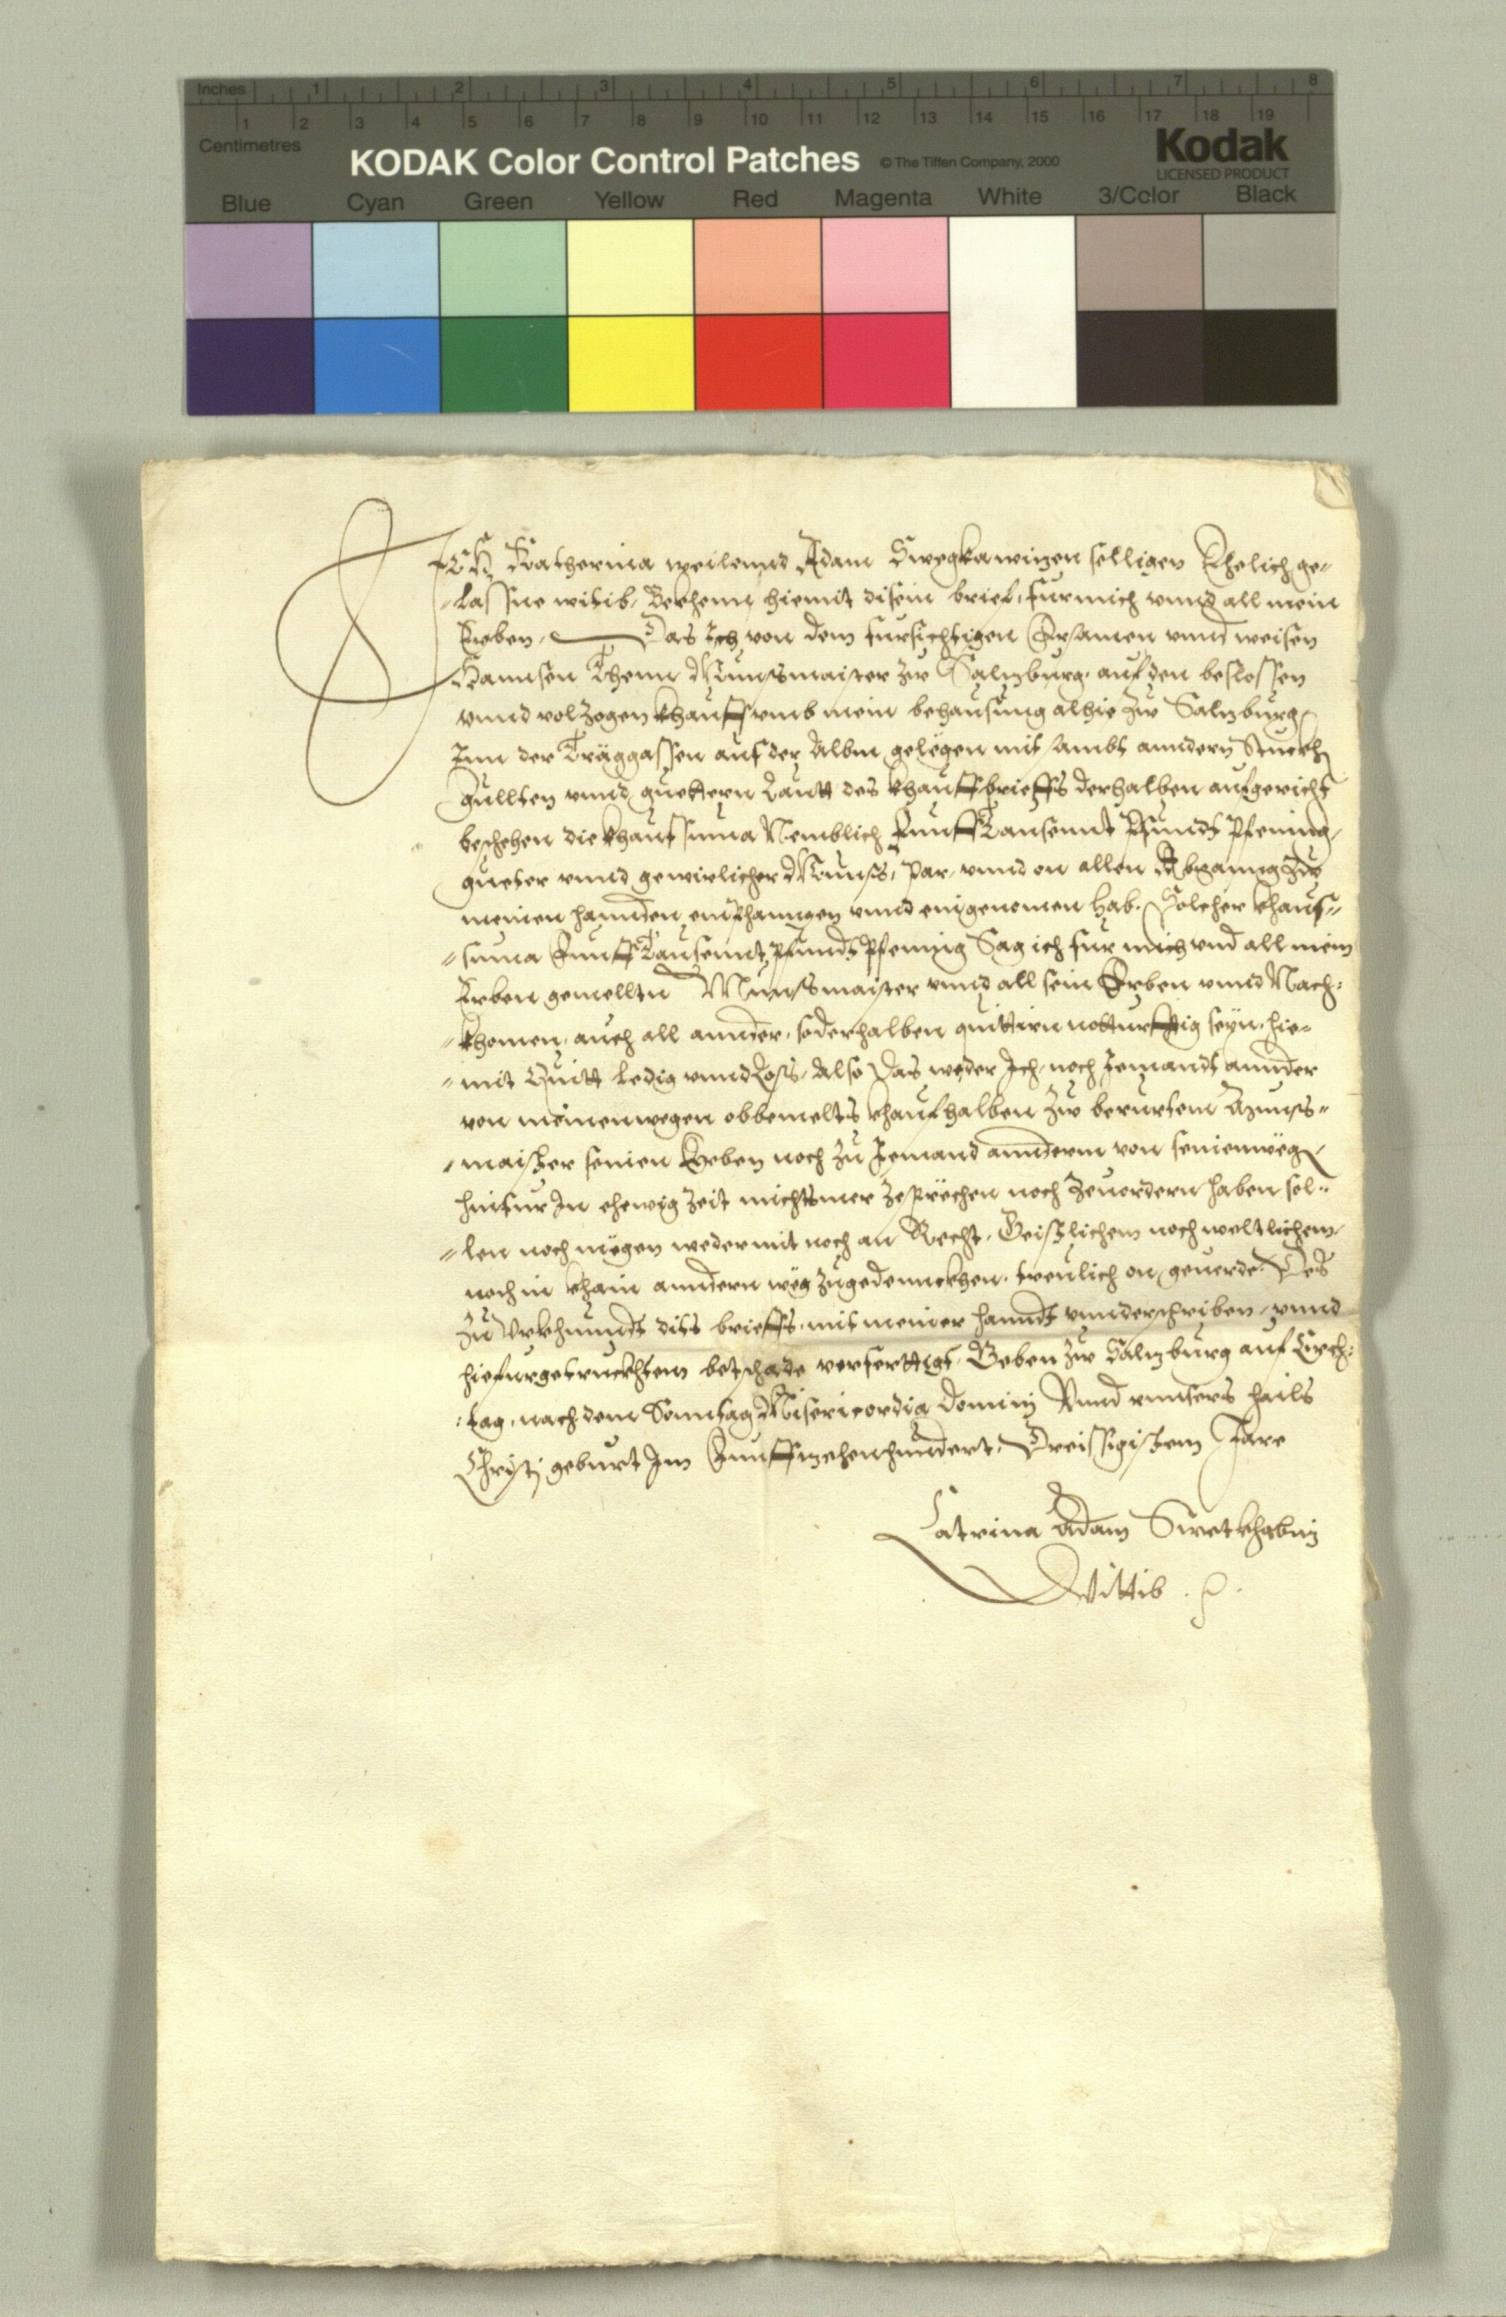 Inches 1 2 3 4 5 6 7 8
1 2 3 4 5 6 7 8 9 10 11 12 13 14 15 16 17 18 19
Centimetres
KODAK Color Control Patches © The Tiffen Company, 2000 Kodak
LICENSED PRODUCT
Blue Cyan Green Yellow Red Magenta White 3/Color Black
Ich Katherina weilennd Adam selligen Ehelich ge=
=lassne witib, Bekhenn hiemit disem brief, fur mich vnnd all mein
Erben, Das Ich von dem fursichtigen Ersamen vnnd weisen
Hannsen Thenn Munsmaister zw Salzburg, auf den beslossen
vnnd volzogen khauff vmb mein behausung alhie zw Salzburg
Inn der Träggassen auf der Albm gelëgen mit sambt anndern Stuckh
gullten vnnd guettern Lautt des khauffbrieffs derhalben aufgericht
beschehen die khaufsuma Nemblich Funff Tausennt Pfundt Pfening,
gueter vnnd gewirlicher Munss, par, vnnd on allen Abganng zw
meinen hannden emphanngen vnnd eingenomen hab. Solcher khauf=
=suma Funff Tausennt Pfundt Pfening Sag ich fur mich vnd all mein
Erben gemellten Munssmaister vnnd all sein Erben vnnd Nach=
=khomen, auch all annder, so derhalben quittirn notturfftig seyn, hie=
=mit Quitt ledig vnnd Loss, Also das weder Ich, noch Jemandt annder
von meinen wegen obbemelts khaufhalben zw berurtem Munss=
=maister seinen Erben noch zu Jemand annderm von seinenwëg
hinfur In ehewig zeit nichtsmer zesprëchen noch zeuordern haben sol=
=len noch mögen weder mit noch an Recht, Geistlichem noch weltlichem,
noch in khain anndern wëg zugedennckhen, treulich on geuerde. Des
Zu Vrkhunndt dits brieffs, mit meiner hanndt vnnderschriben, vnnd
hiefurgetruckhtem betschade verferttigt, Geben zw Salzburg auf Erch=
=tag, nach dem Sonntag Misericordia Dominj Vnnd vnnsers hails
Christj geburt Im Funffzehenhundert, Dreissigistem Jare
Catrina Adam
Wittib